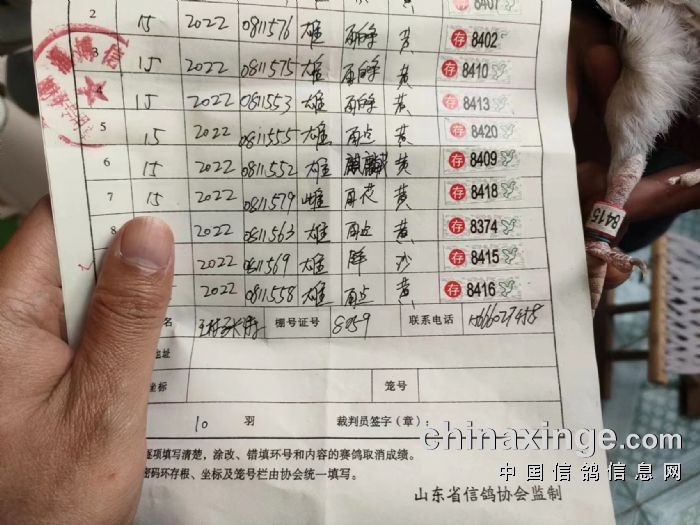 8407
2 15 2022 0811576 雄 雨白条 黄 存 8402
3 15 2022 0811575 雄 雨白条 黄 存 8410
4 15 2022 0811553 雄 雨白条 黄 存 8413
5 15 2022 0811555 雄 雨点 黄 存 8420
6 15 2022 0811552 雄 麒麟花 黄 存 8409
7 15 2022 0811579 雌 雨花 黄 存 8418
8 2022 0811563 雄 雨点 黄 存 8374
2022 0811569 雄 沙 存 8415
2022 0811558 雄 雨点 黄 存 8416
名 棚号证号 8059 联系电话
地址
坐标 笼号
10 羽 裁判员签字(章):
逐项填写清楚,涂改、错填环号和内容的赛鸽取消成绩。
密码环存根、坐标及笼号栏由协会统一填写。
山东省信鸽协会监制
8415
chinaxinge.com
中国信鸽信息网